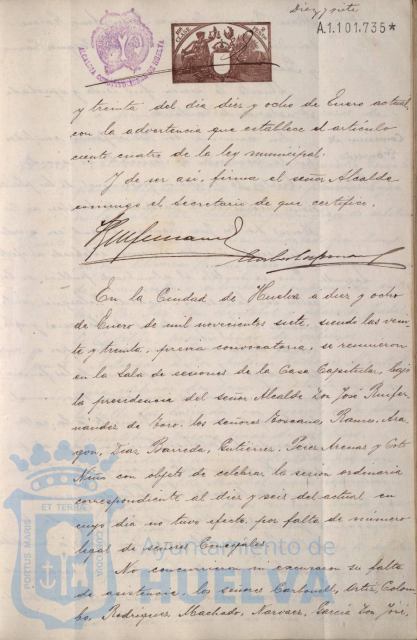 Diez y siete
A.1.101.735*
ALCALDIA CONSTITUCIONAL DE HUELVA
y treinta del dia diez y ocho de Enero actual,
con la advertencia que establece el artículo
ciento cuatro de la ley municipal.
Y de ser así, firma el señor Alcalde
conmigo el Secretario de que certifico.
En la Ciudad de Huelva a diez y ocho
de Enero de mil novecientos siete, siendo las vein
te y treinta, previa convocatoria, se reunieron
en la Sala de sesiones de la Casa Capitular, bajo
la presidencia del señor Alcalde Don José Ruifer-
nández de Toro, los señores Toscano, Ramos, Ara-
gón, Diaz Barreda, Gutiérrez, Pérez Arenas y Coto
Niño con objeto de celebrar la sesión ordinaria
correspondiente al diez y seis del actual en
cuyo dia no tuvo efecto, por falta de número
legal de señores Concejales.
No concurrieron ni excusaron su falta
de asistencia, los señores Carbonell, Ortiz, Colom-
bo, Rodriguez Machado, Narvaez, García Don José,
PORTUS MARIS ET TERRAE CUSTODIA
Ayuntamiento de
HUELVA